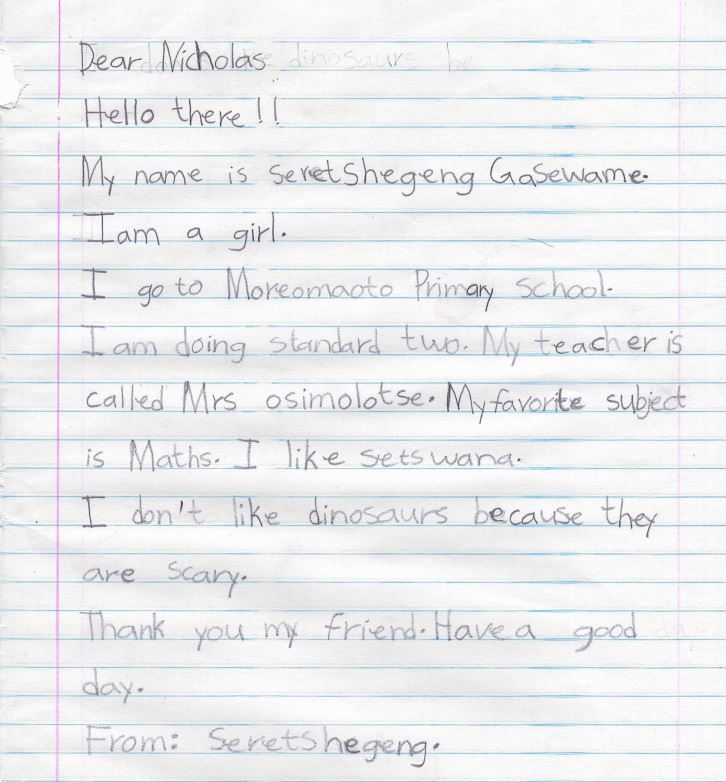 Dear Nicholas
Hello there!!
My name is SeretShegeng GaSewame.
I am a girl.
I go to Moreomaoto Primary School.
I am doing standard two. My teacher is
called Mrs osimolotse. My favorite subject
is Maths. I like setswana.
I don't like dinosaurs because they
are scary.
Thank you my friend. Have a good
day.
From: SeretShegeng.